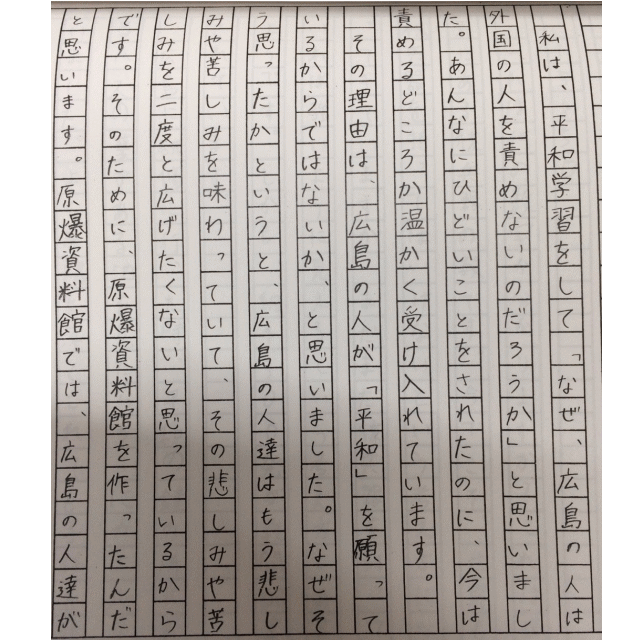 私は、平和学習をして「なぜ、広島の人は
外国の人を責めないのだろうか」と思いまし
た。あんなにひどいことをされたのに、今は
責めるどころか温かく受け入れています。
その理由は、広島の人が「平和」を願って
いるからではないか、と思いました。なぜそ
う思ったかというと、広島の人達はもう悲し
みや苦しみを味わっていて、その悲しみや苦
しみを二度と広げたくないと思っているから
です。そのために、原爆資料館を作ったんだ
と思います。原爆資料館では、広島の人達が